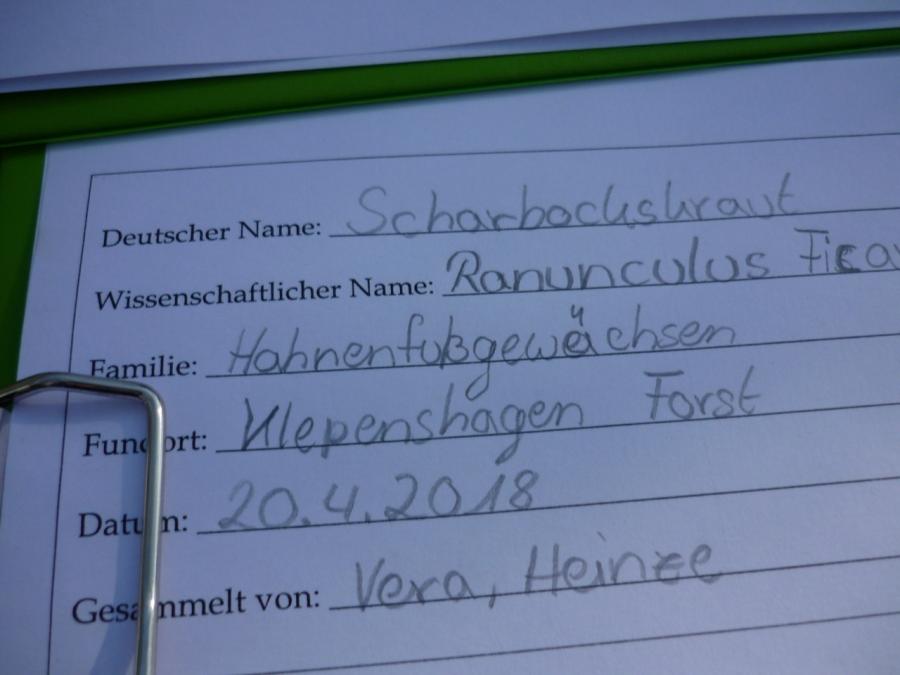 Deutscher Name: Scharbockskraut
Wissenschaftlicher Name: Ranunculus Fica
Familie: Hahnenfußgewächsen
Fundort: Klepenshagen Forst
Datum: 20.4.2018
Gesammelt von: Vera, Heinze